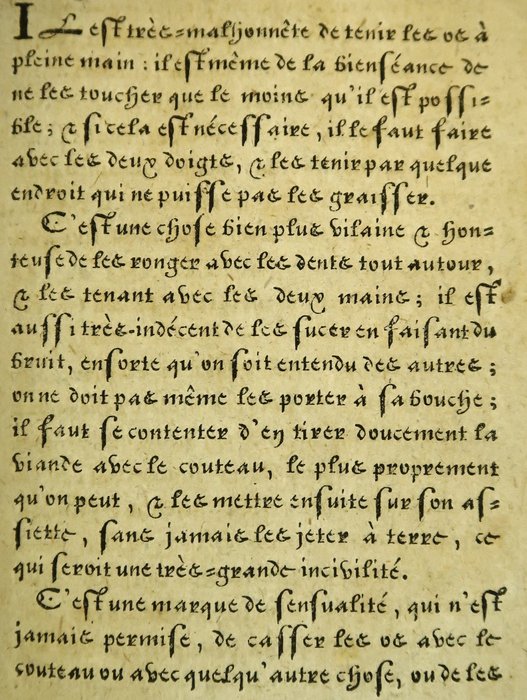 IL est très=malhonnête de tenir les os à
pleine main : il est même de la bienséance de
ne les toucher que le moins qu'il est possi=
ble ; & si cela est nécessaire, il le faut faire
avec les deux doigts, & les tenir par quelque
endroit qui ne puisse pas les graisser.
C'est une chose bien plus vilaine & hon=
teuse de les ronger avec les dents tout autour,
& les tenant avec les deux mains ; il est
aussi très-indécent de les sucer en faisant du
bruit, ensorte qu'on soit entendu des autres ;
on ne doit pas même les porter à sa bouche ;
il faut se contenter d'en tirer doucement la
viande avec le couteau, le plus proprement
qu'on peut, & les mettre ensuite sur son as=
siette, sans jamais les jeter à terre, ce
qui seroit une très=grande incivilité.
C'est une marque de sensualité, qui n'est
jamais permise, de casser les os avec le
couteau ou avec quelqu'autre chose, ou de les